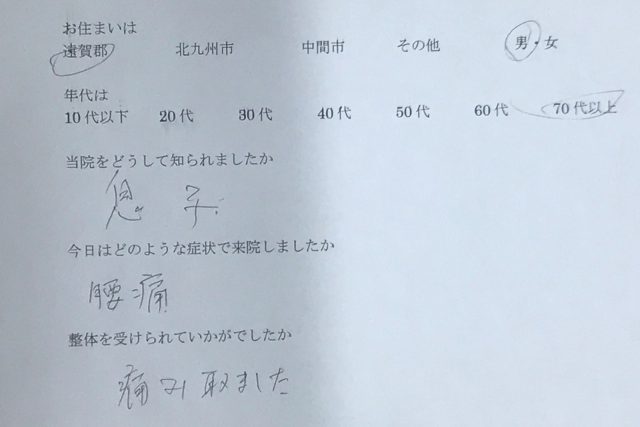 お住まいは
遠賀郡 北九州市 中間市 その他 男・女
年代は
10代以下 20代 30代 40代 50代 60代 70代以上
当院をどうして知られましたか
息子
今日はどのような症状で来院しましたか
腰痛
整体を受けられていかがでしたか
痛み取ました